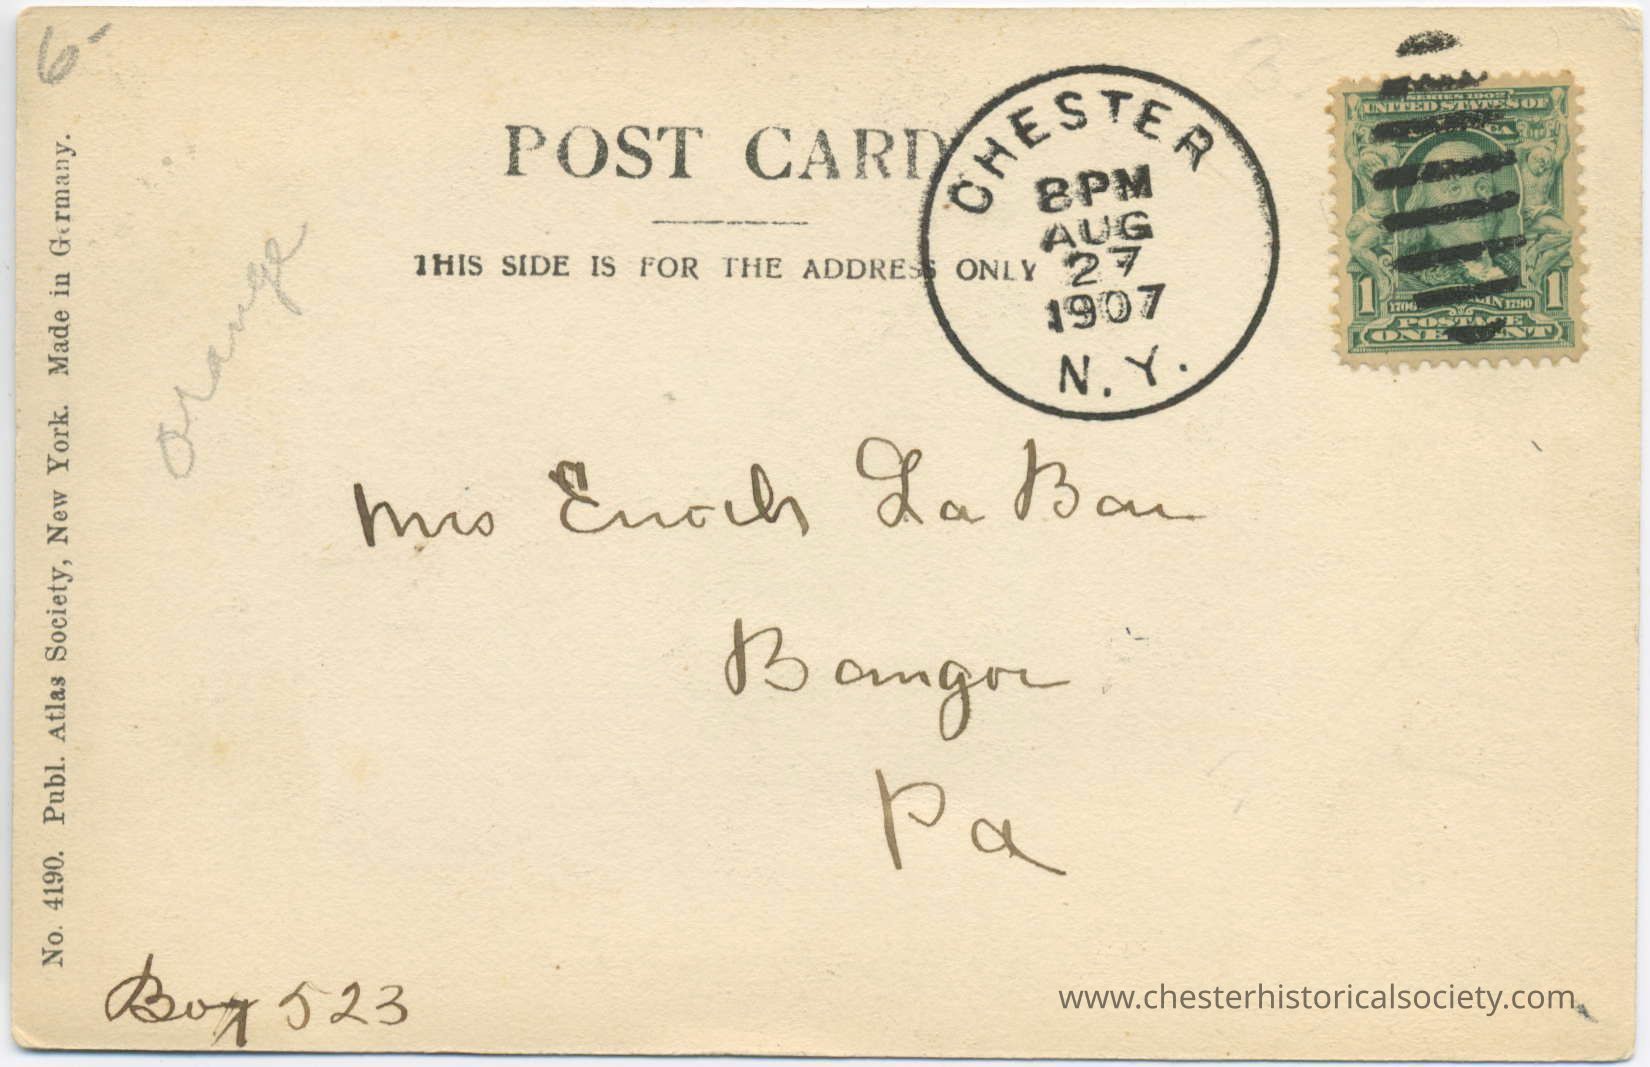 6-
POST CARD
THIS SIDE IS FOR THE ADDRESS ONLY
CHESTER
8PM
AUG
27
1907
N.Y.
SERIES 1902
UNITED STATES OF
1706 1790
1 1
POSTAGE
ONE CENT
orange
No. 4190. Publ. Atlas Society, New York. Made in Germany.
Mrs Enoch La Bar
Bangor
Pa
Box 523
www.chesterhistoricalsociety.com